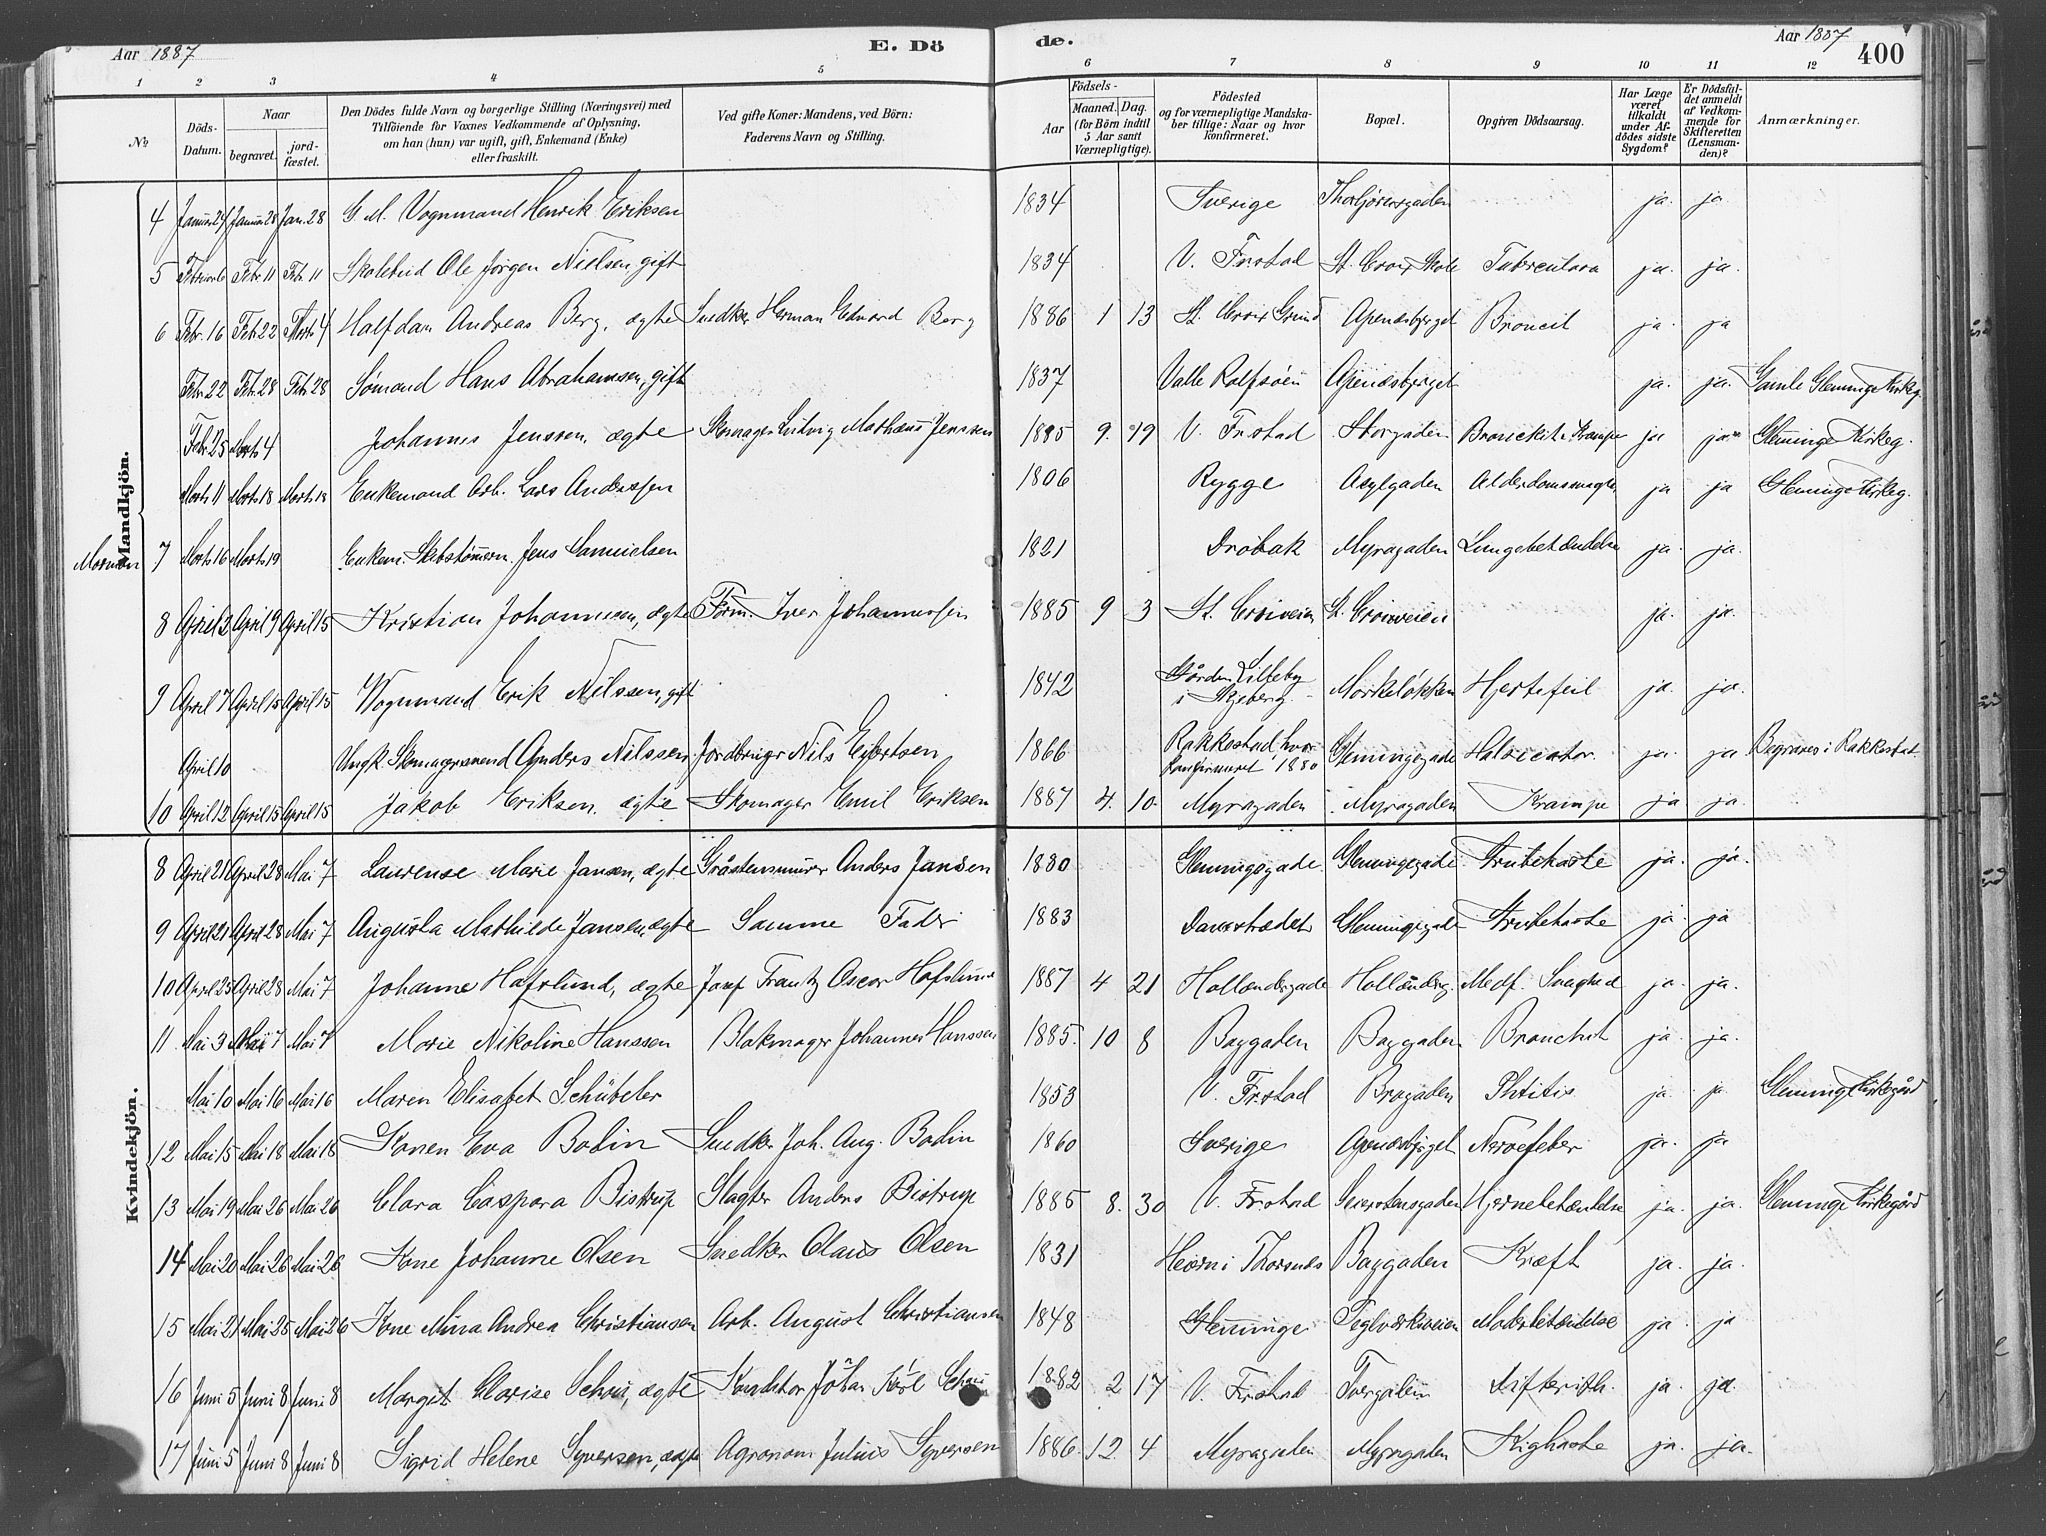 Aar 1887 E. Dö de. Aar 1887 400
1 2 3 4 5 6 7 8 9 10 11 12
№ Döds-Datum. Naar begravet. jordfæstet. Den Dödes fulde Navn og borgerlige Stilling (Næringsvei) med Tilföiende for Voxnes Vedkommende af Oplysning, om han (hun) var ugift, gift, Enkemand (Enke) eller fraskilt. Ved gifte Koner: Mandens, ved Börn: Faderens Navn og Stilling. Födsels- Aar Maaned. Dag. (for Börn indtil 5 Aar samt Værnepligtige). Födested og for værnepligtige Mandskaber tillige: Naar og hvor konfirmeret. Bopæl. Opgiven Dödsaarsag. Har Læge været tilkaldt under Afdödes sidste Sygdom? Er Dödsfaldet anmeldt af Vedkommende for Skifteretten (Lensmanden)? Anmærkninger.
Mandkjön.
4 Januar 24 Januar 28 Jan. 28 G. M. Vognmand Henrik Eriksen 1834 Sverige Thorbjørnsgaden ja. ja
5 Februar 6 Febr. 11 Febr. 11 Skolebud Ole Jørgen Nielsen, gift 1834 V. Frstad St. Croix Skole ja. ja.
6 Febr. 16 Febr. 22 Marts 4 Halfdan Andreas Berg, ægte Snedker Herman Edvard Berg 1886 1 13 St. Croix Grund Apenæsbjerget ja. ja
Febr. 22 Febr. 28 Febr. 28 Sømand Hans Abrahamsen, gift 1837 Valle Rolfsøen Apenæsbjerget ja. ja. Gamle Glemminge Kirkeg.
Febr. 25 Marts 4 Johannes Jenssen, ægte Skomager Ludvig Mathæus Jenssen 1885 9. 19 V. Frstad Storgaden ja ja Glemminge Kirkeg.
Marts 11 Marts 18 Marts 18 Enkemand Arb. Lars Anderssen 1806 Rygge Asylgaden ja ja Glemminge Kirkeg.
Morman 7 Marts 16 Marts 19 Enkem. Skibstømerm. Jens Samuelsen 1821 Drøbak Myragaden Lungebetændelse ja. ja.
8 April 2 April 9 April 15 Kristian Johannessen, ægte Form. Iver Johannessen 1885 9 3 St. Croixveien St. Croixveien ja. ja.
9 April 7 April 15 April 15 Vognmand Erik Nilssen, gift 1842 Gården Lilleby i Skjeberg. Hjertefeil ja. ja.
April 10 Ungk. Skomagersvend Anders Nilssen Jordbruger Nils Eibertsen 1866 Rakkestad, hvor konfirmeret 1880 Glemingegade ja. ja Begraves i Rakkestad.
10 April 12 April 15 April 15 Jakob Eriksen, ægte Skomager Emil Eriksen 1887 4. 10. Myragaden Myragaden Krampe ja ja.
Kvindekjön.
8 April 21 April 28 Mai 7 Laurense Marie Jansen, ægte Gråstensmurer Anders Jansen 1880 Glemingegade. Glemingegade Strubehoste ja. ja.
9 April 21 April 28 Mai 7 Augusta Mathilde Jansen, ægte Samme Fader 1883 Glemingegade Strubehoste ja. ja
10 April 25 April 28 Mai 7 Johanne Hafslund, ægte Josef Frantz Oscar Hafslund 1887 4 21 Hollændergade Hollænderg. Medf. Svaghed ja. ja.
11 Mai 3 Mai 7 Mai 7 Marie Nikoline Hanssen Blokmager Johannes Hanssen 1885. 10 8 Baggaden Baggaden Bronchit ja. ja.
Mai 10 Mai 16 Mai 16 Maren Elisabet Schübeler 1853 V. Frstad Brogaden Phtitis ja. ja Glemminge Kirkegård
12 Mai 15 Mai 18 Mai 18 Konen Eva Bodin Snedker Joh. Aug. Bodin 1860 Sverige Apenæsbjerget Nervefeber ja. ja
13 Mai 19 Mai 26 Mai 26 Clara Caspara Bistrup Slagter Anders Bistrup 1885 8. 30 V. Frstad Hjernebetændelse ja. ja. Glemminge Kirkegård
14 Mai 20 Mai 26 Mai 26 Kone Johanne Olsen Snedker Olaus Olsen 1831 Heiern i Thorsnes Baggaden Kræft ja. ja.
15 Mai 21 Mai 25 Mai 26 Kone Mina Andrea Christiansen Arb. August Christiansen 1848 Glemminge Teglværksveien ja. ja
16 Juni 5 Juni 8 Juni 8 Margit Clarise Schou, ægte Konditor Johan Schou 1882 2 17 V. Frstad Difterith. ja. ja.
17 Juni 5 Juni 8 Juni 8 Sigrid Helene Syversen, ægte Agronom Julius Syversen 1886. 12. 4 Myragaden Myragaden Kighoste ja. ja.